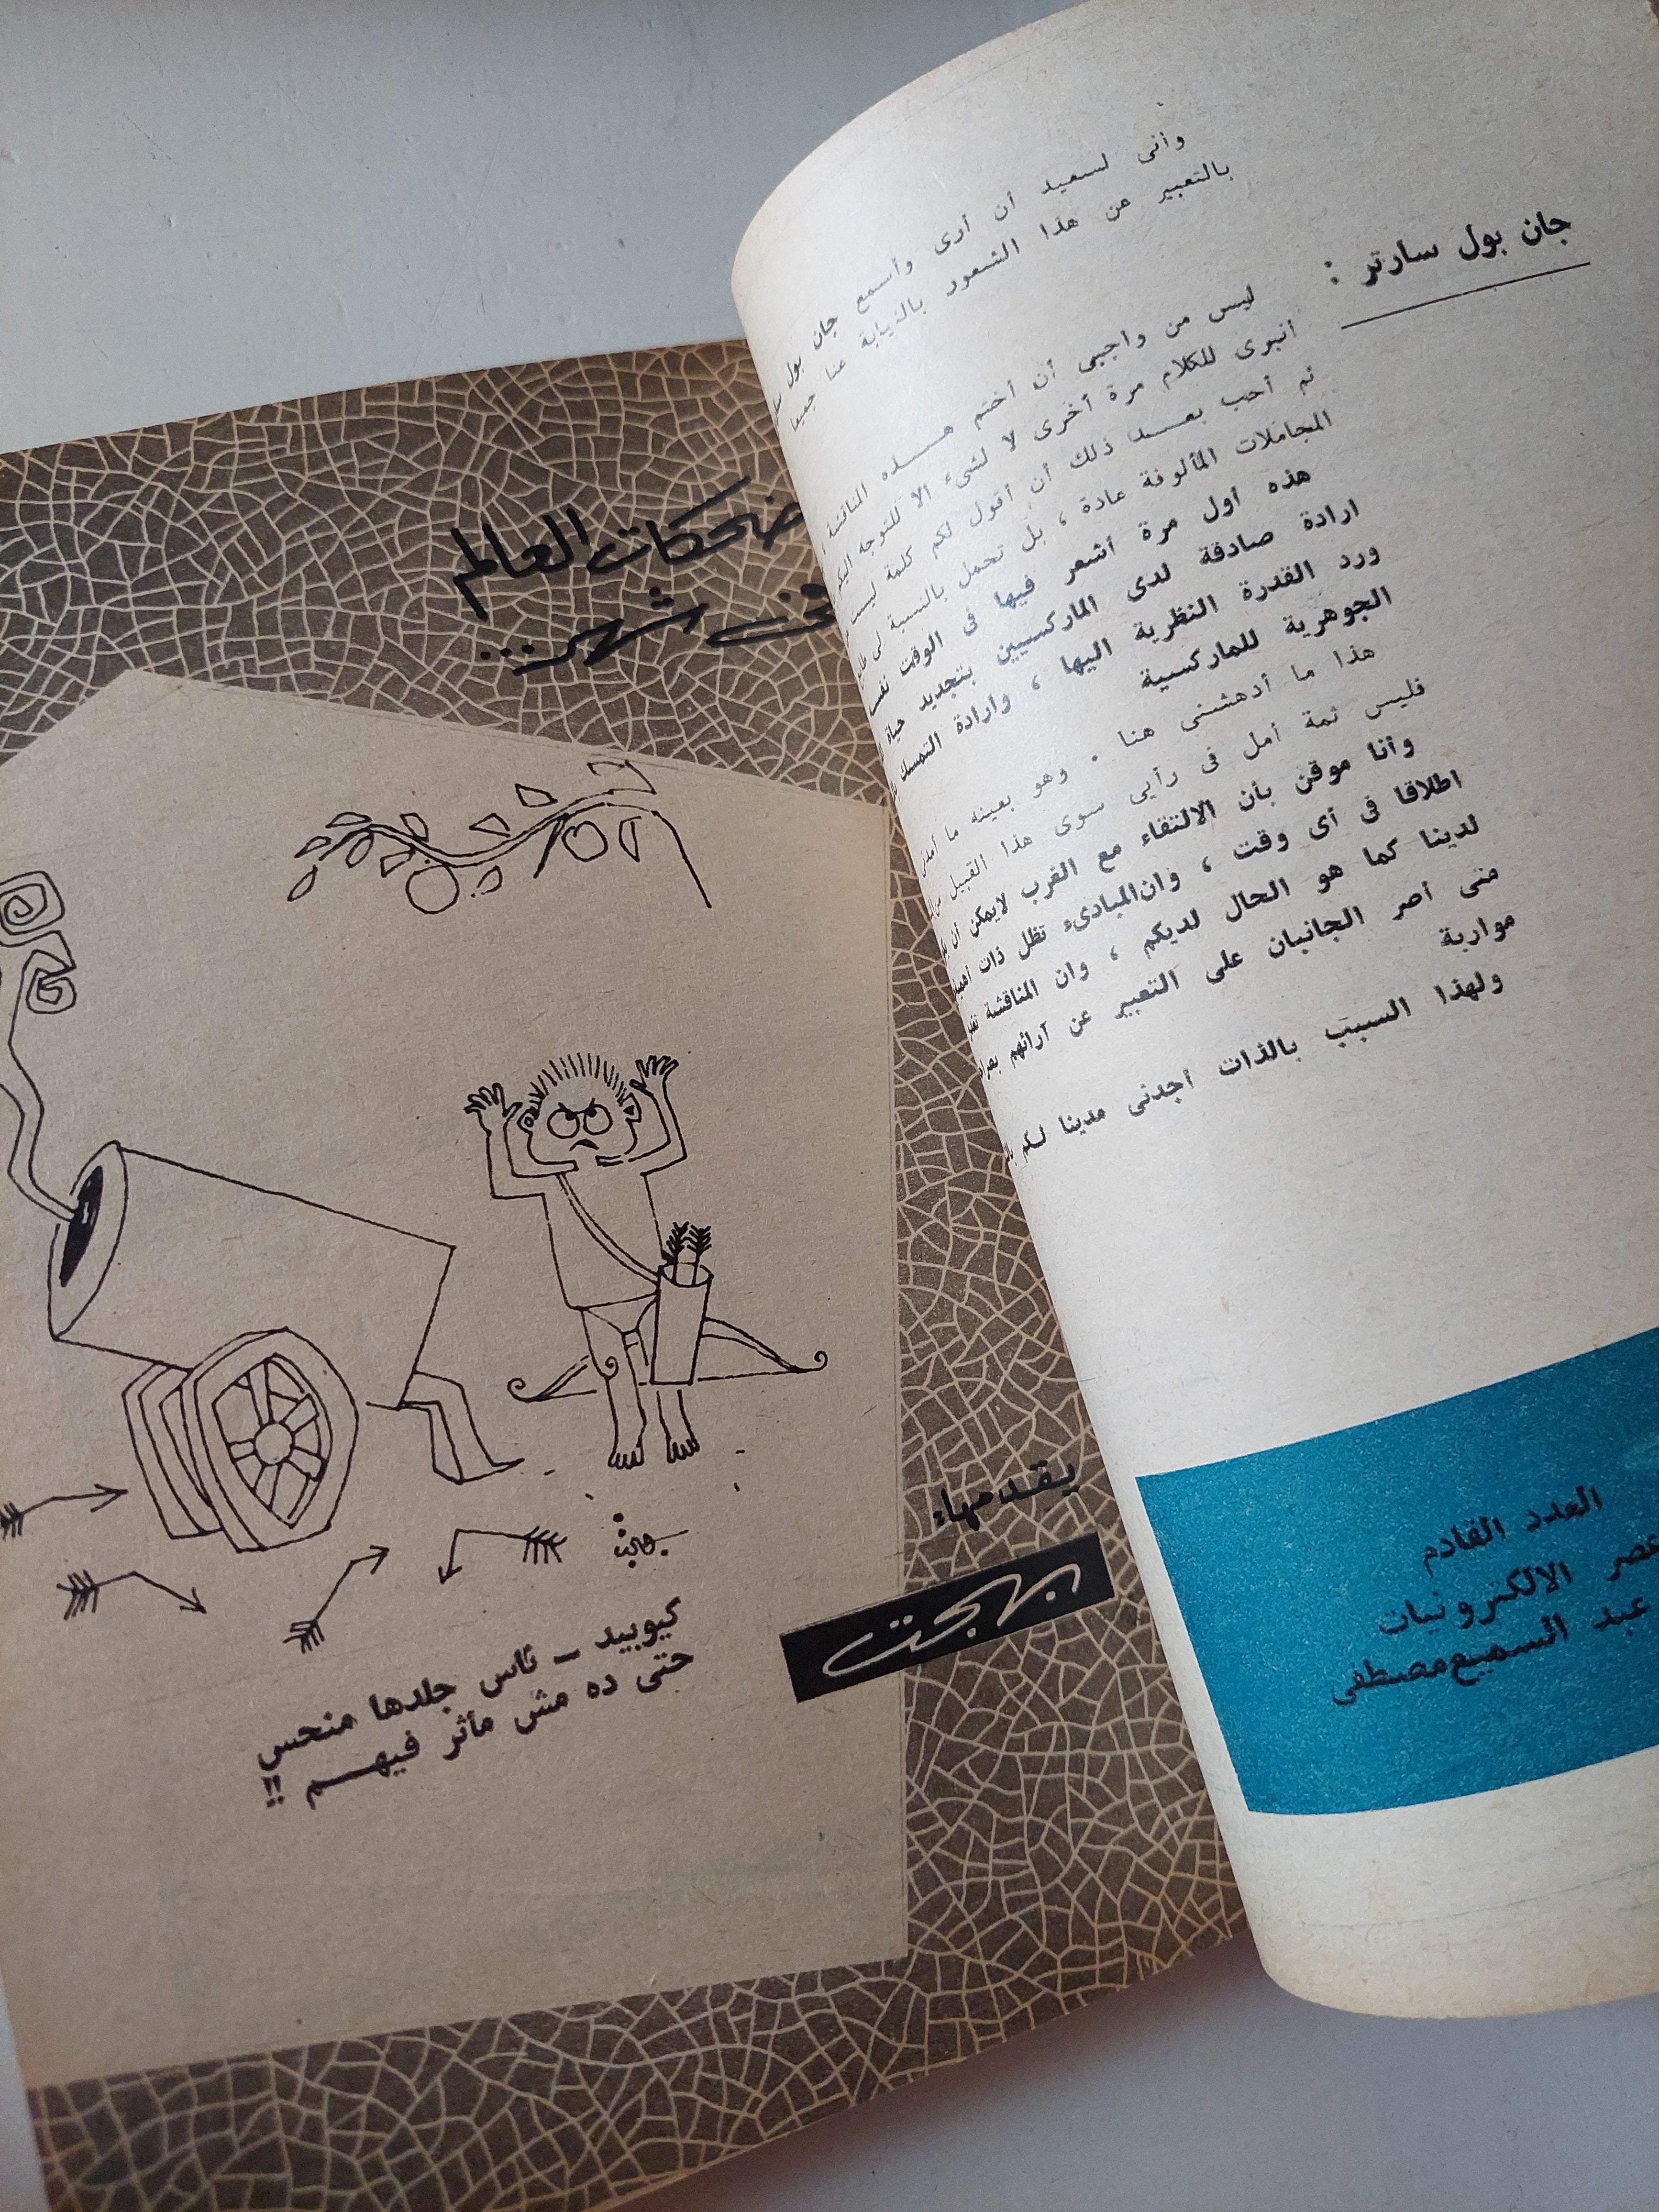 وأنى لسعيد أن أرى وأسمع جان بول
بالتعبير عن هذا الشعور بالنيابة عنا جميعا
جان بول سارتر :
ليس من واجبى أن أختم هـــذه المناقشة ،
أنبرى للكلام مرة أخرى لا لشىء الا للتوجه اليكم
ثم أحب بعـــد ذلك أن أقول لكم كلمة ليست
المجاملات المألوفة عادة ، بل تحمل بالنسبة لى
هذه أول مرة أشعر فيها فى الوقت نفسه
ارادة صادقة لدى الماركسيين بتجديد حياة
ورد القدرة النظرية اليها ، وارادة التمسك
الجوهرية للماركسية
هذا ما أدهشنى هنا . وهو بعينه ما
فليس ثمة أمل فى رأيى سوى هذا القبيل
وأنا موقن بأن الالتقاء مع الغرب لايمكن أن
اطلاقا فى أى وقت ، وان المبادىء تظل ذات
لدينا كما هو الحال لديكم ، وان المناقشة
متى أصر الجانبان على التعبير عن آرائهم
مواربة
ولهذا السبب بالذات أجدنى مدينا لكم
العدد القادم
عصر الالكترونيات
عبد السميع مصطفى
ضحكات العالم
فى شهر ...
بهجت
كيوبيد – ناس جلدها منحس
حتى ده مش مأثر فيهـــم !!
يقدمها
بهجت